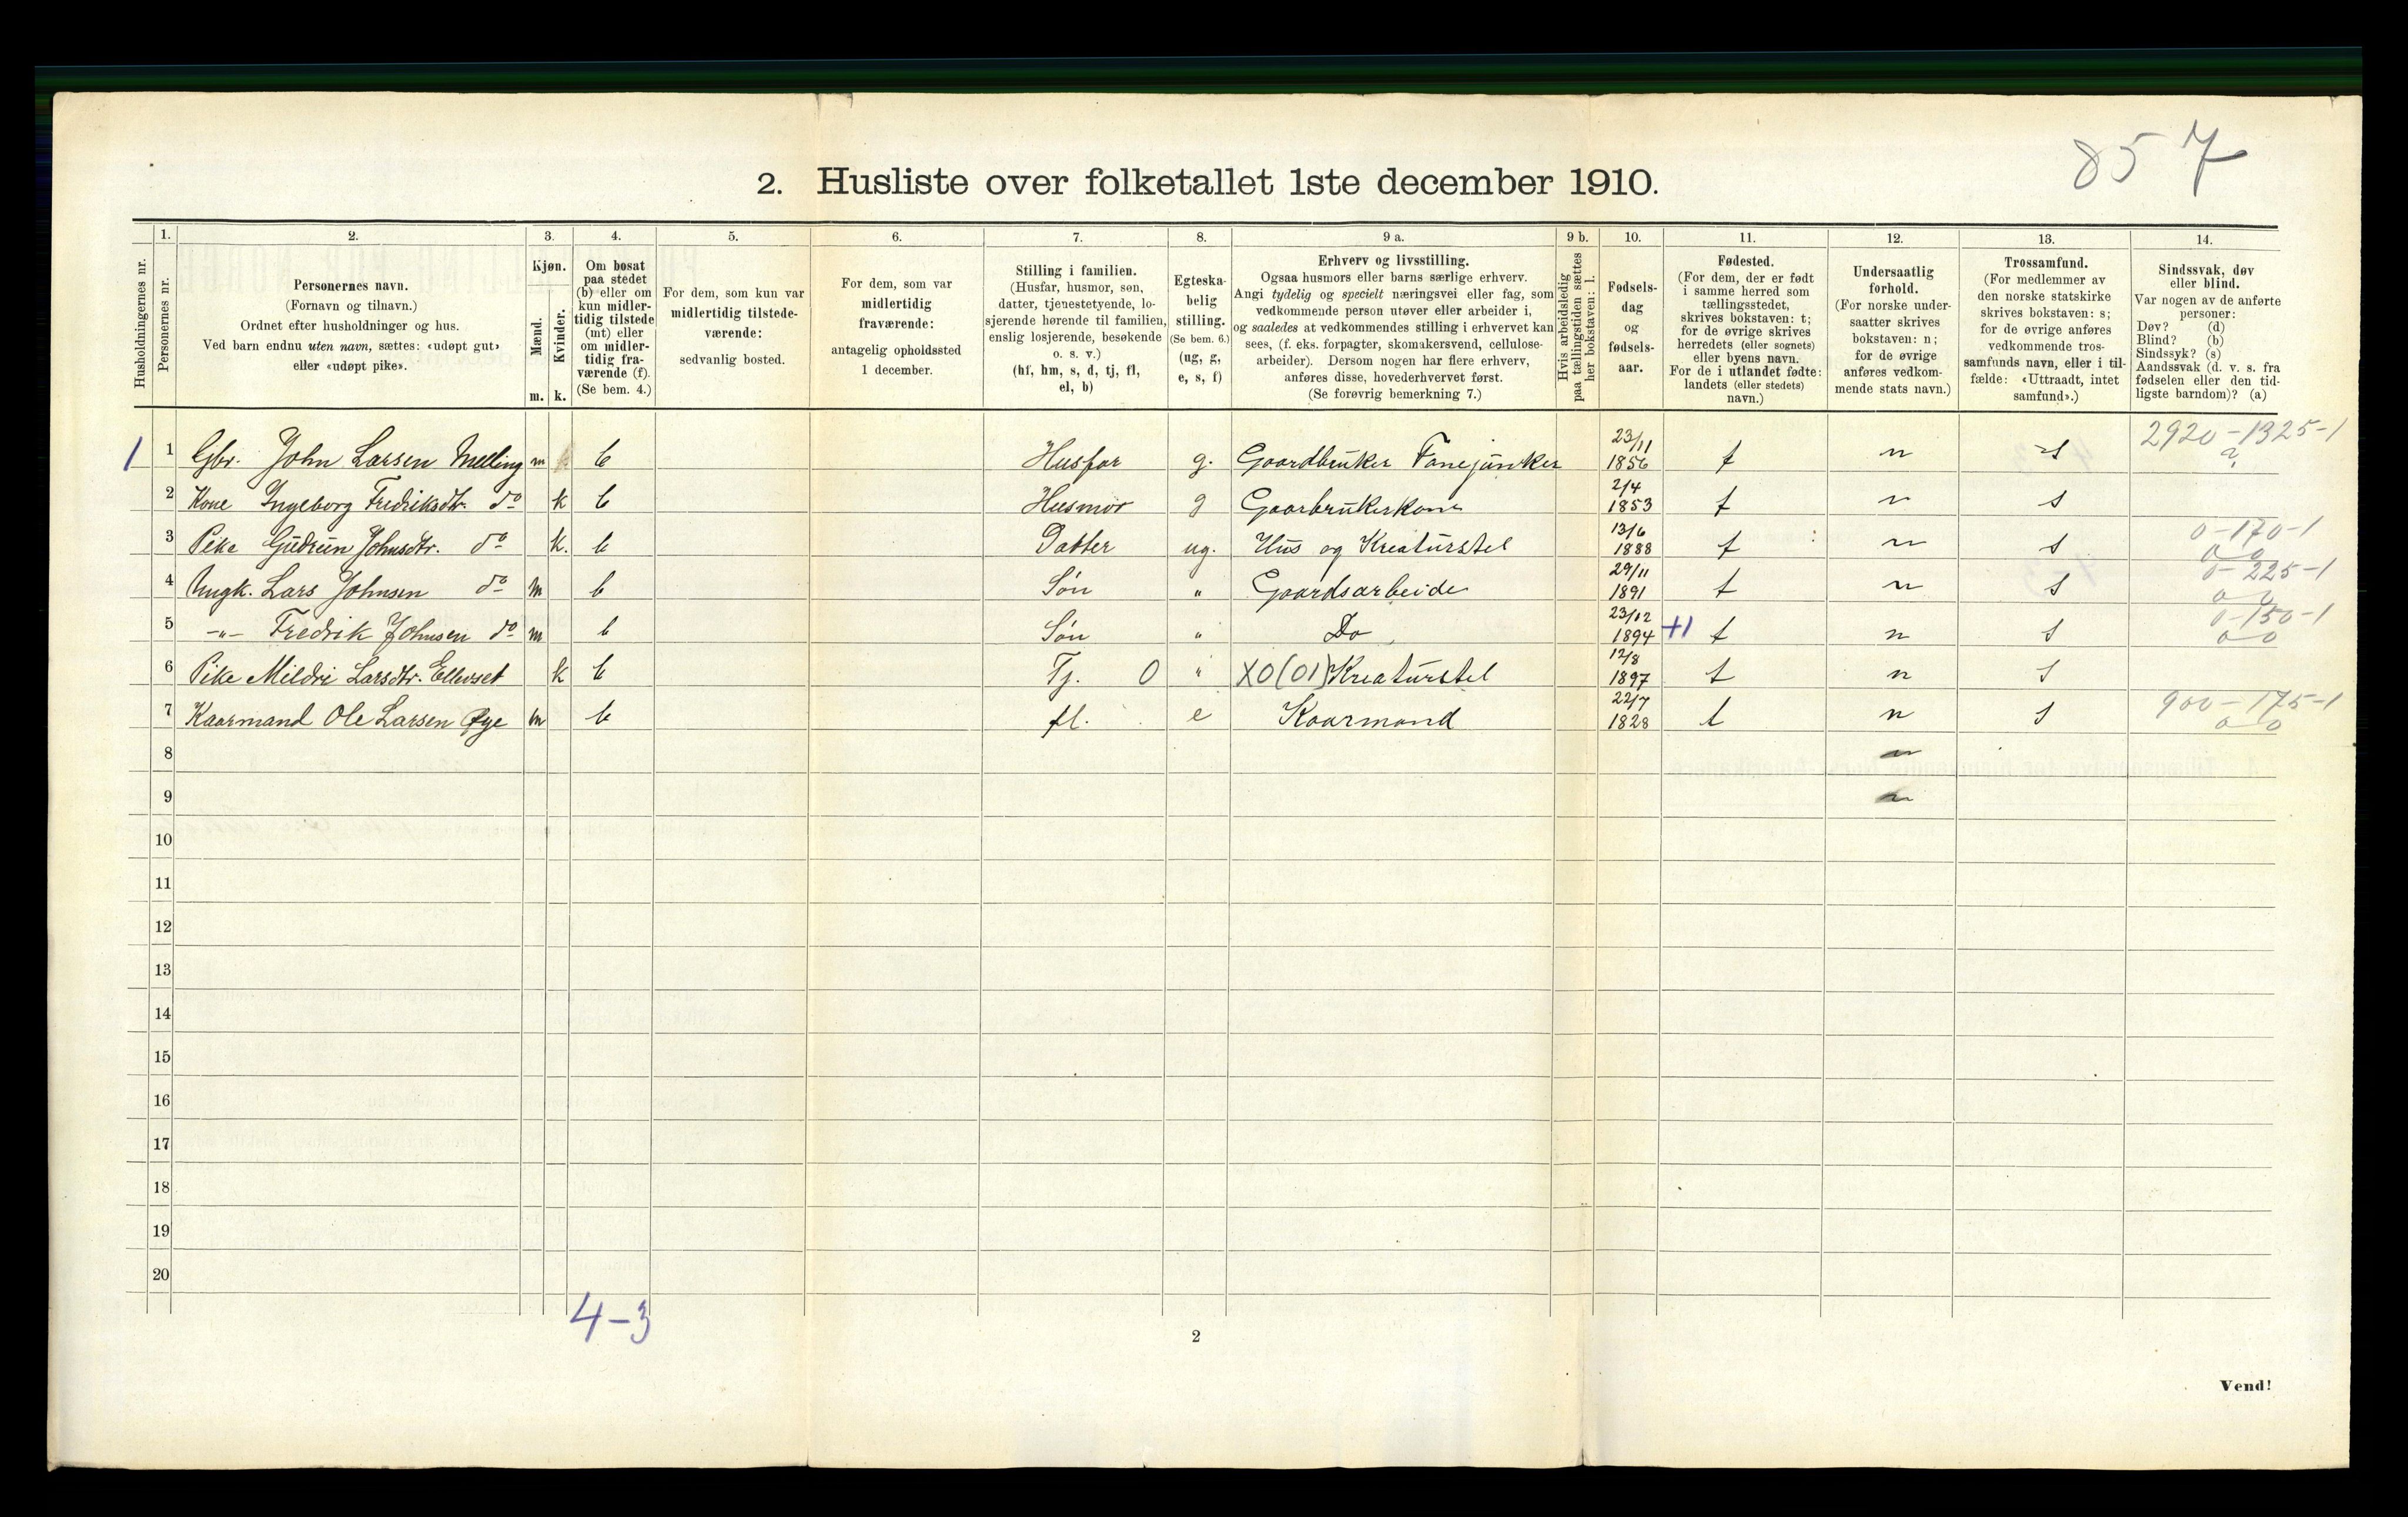 857
2. Husliste over folketallet 1ste december 1910.
1. 2. 3. 4. 5. 6. 7. 8. 9 a. 9 b. 10. 11. 12. 13. 14.
Husholdningernes nr.
Personernes nr.
Personernes navn.
(Fornavn og tilnavn.)
Ordnet efter husholdninger og hus.
Ved barn endnu uten navn, sættes: «udøpt gut»
eller «udøpt pike».
Kjøn.
Mænd.
Kvinder.
m. k.
Om bosat
paa stedet
(b) eller om
kun midler-
tidig tilstede
(mt) eller
om midler-
tidig fra-
værende (f).
(Se bem. 4.)
For dem, som kun var
midlertidig tilstede-
værende:
sedvanlig bosted.
For dem, som var
midlertidig
fraværende:
antagelig opholdssted
1 december.
Stilling i familien.
(Husfar, husmor, søn,
datter, tjenestetyende, lo-
sjerende hørende til familien,
enslig losjerende, besøkende
o. s. v.)
(hf, hm, s, d, tj, fl,
el, b)
Egteska-
belig
stilling.
(Se bem. 6.)
(ug, g,
e, s, f)
Erhverv og livsstilling.
Ogsaa husmors eller barns særlige erhverv.
Angi tydelig og specielt næringsvei eller fag, som
vedkommende person utøver eller arbeider i,
og saaledes at vedkommendes stilling i erhvervet kan
sees, (f. eks. forpagter, skomakersvend, cellulose-
arbeider). Dersom nogen har flere erhverv,
anføres disse, hovederhvervet først.
(Se forøvrig bemerkning 7.)
Hvis arbeidsledig
paa tællingstiden sættes
her bokstaven: l.
Fødsels-
dag
og
fødsels-
aar.
Fødested.
(For dem, der er født
i samme herred som
tællingsstedet,
skrives bokstaven: t;
for de øvrige skrives
herredets (eller sognets)
eller byens navn.
For de i utlandet fødte:
landets (eller stedets)
navn.)
Undersaatlig
forhold.
(For norske under-
saatter skrives
bokstaven: n;
for de øvrige
anføres vedkom-
mende stats navn.)
Trossamfund.
(For medlemmer av
den norske statskirke
skrives bokstaven: s;
for de øvrige anføres
vedkommende tros-
samfunds navn, eller i til-
fælde: «Uttraadt, intet
samfund».)
Sindssvak, døv
eller blind.
Var nogen av de anførte
personer:
Døv? (d)
Blind? (b)
Sindssyk? (s)
Aandssvak (d. v. s. fra
fødselen eller den tid-
ligste barndom)? (a)
1 1 Gbr. John Larsen Melling m b Husfar g. Gaardbruker Fanejunker 23/11 1856 t n s 2920-1325-1 ?
2 Kone Ingeborg Fredriksdtr. do k b Husmor g Gaarbrukerkone 2/4 1853 t n s
3 Pike Gudrun Johnsdtr. do k. b Datter ug. Hus og Kreaturstel 13/6 1888 t n s 0-170-1 0 0
4 Ungk. Lars Johnsen do m b Søn " Gaardsarbeide 29/11 1891 t n s 0-225-1 0 0
5 -"- Fredrik Johnsen do m b Søn " Do 23/12 1894 +1 t n s 0-150-1 0 0
6 Pike Mildri Larsdtr. Ellevset k b Tj. 0 " XO(01) Kreaturstel 12/8 1897 t n s
7 Kaarmand Ole Larsen Øye m b fl. e Kaarmand 22/7 1828 t n s 900-175-1 0 0
8 n
9 n
10
11
12
13
14
15
16
17
18
19
20
4-3
2
Vend!